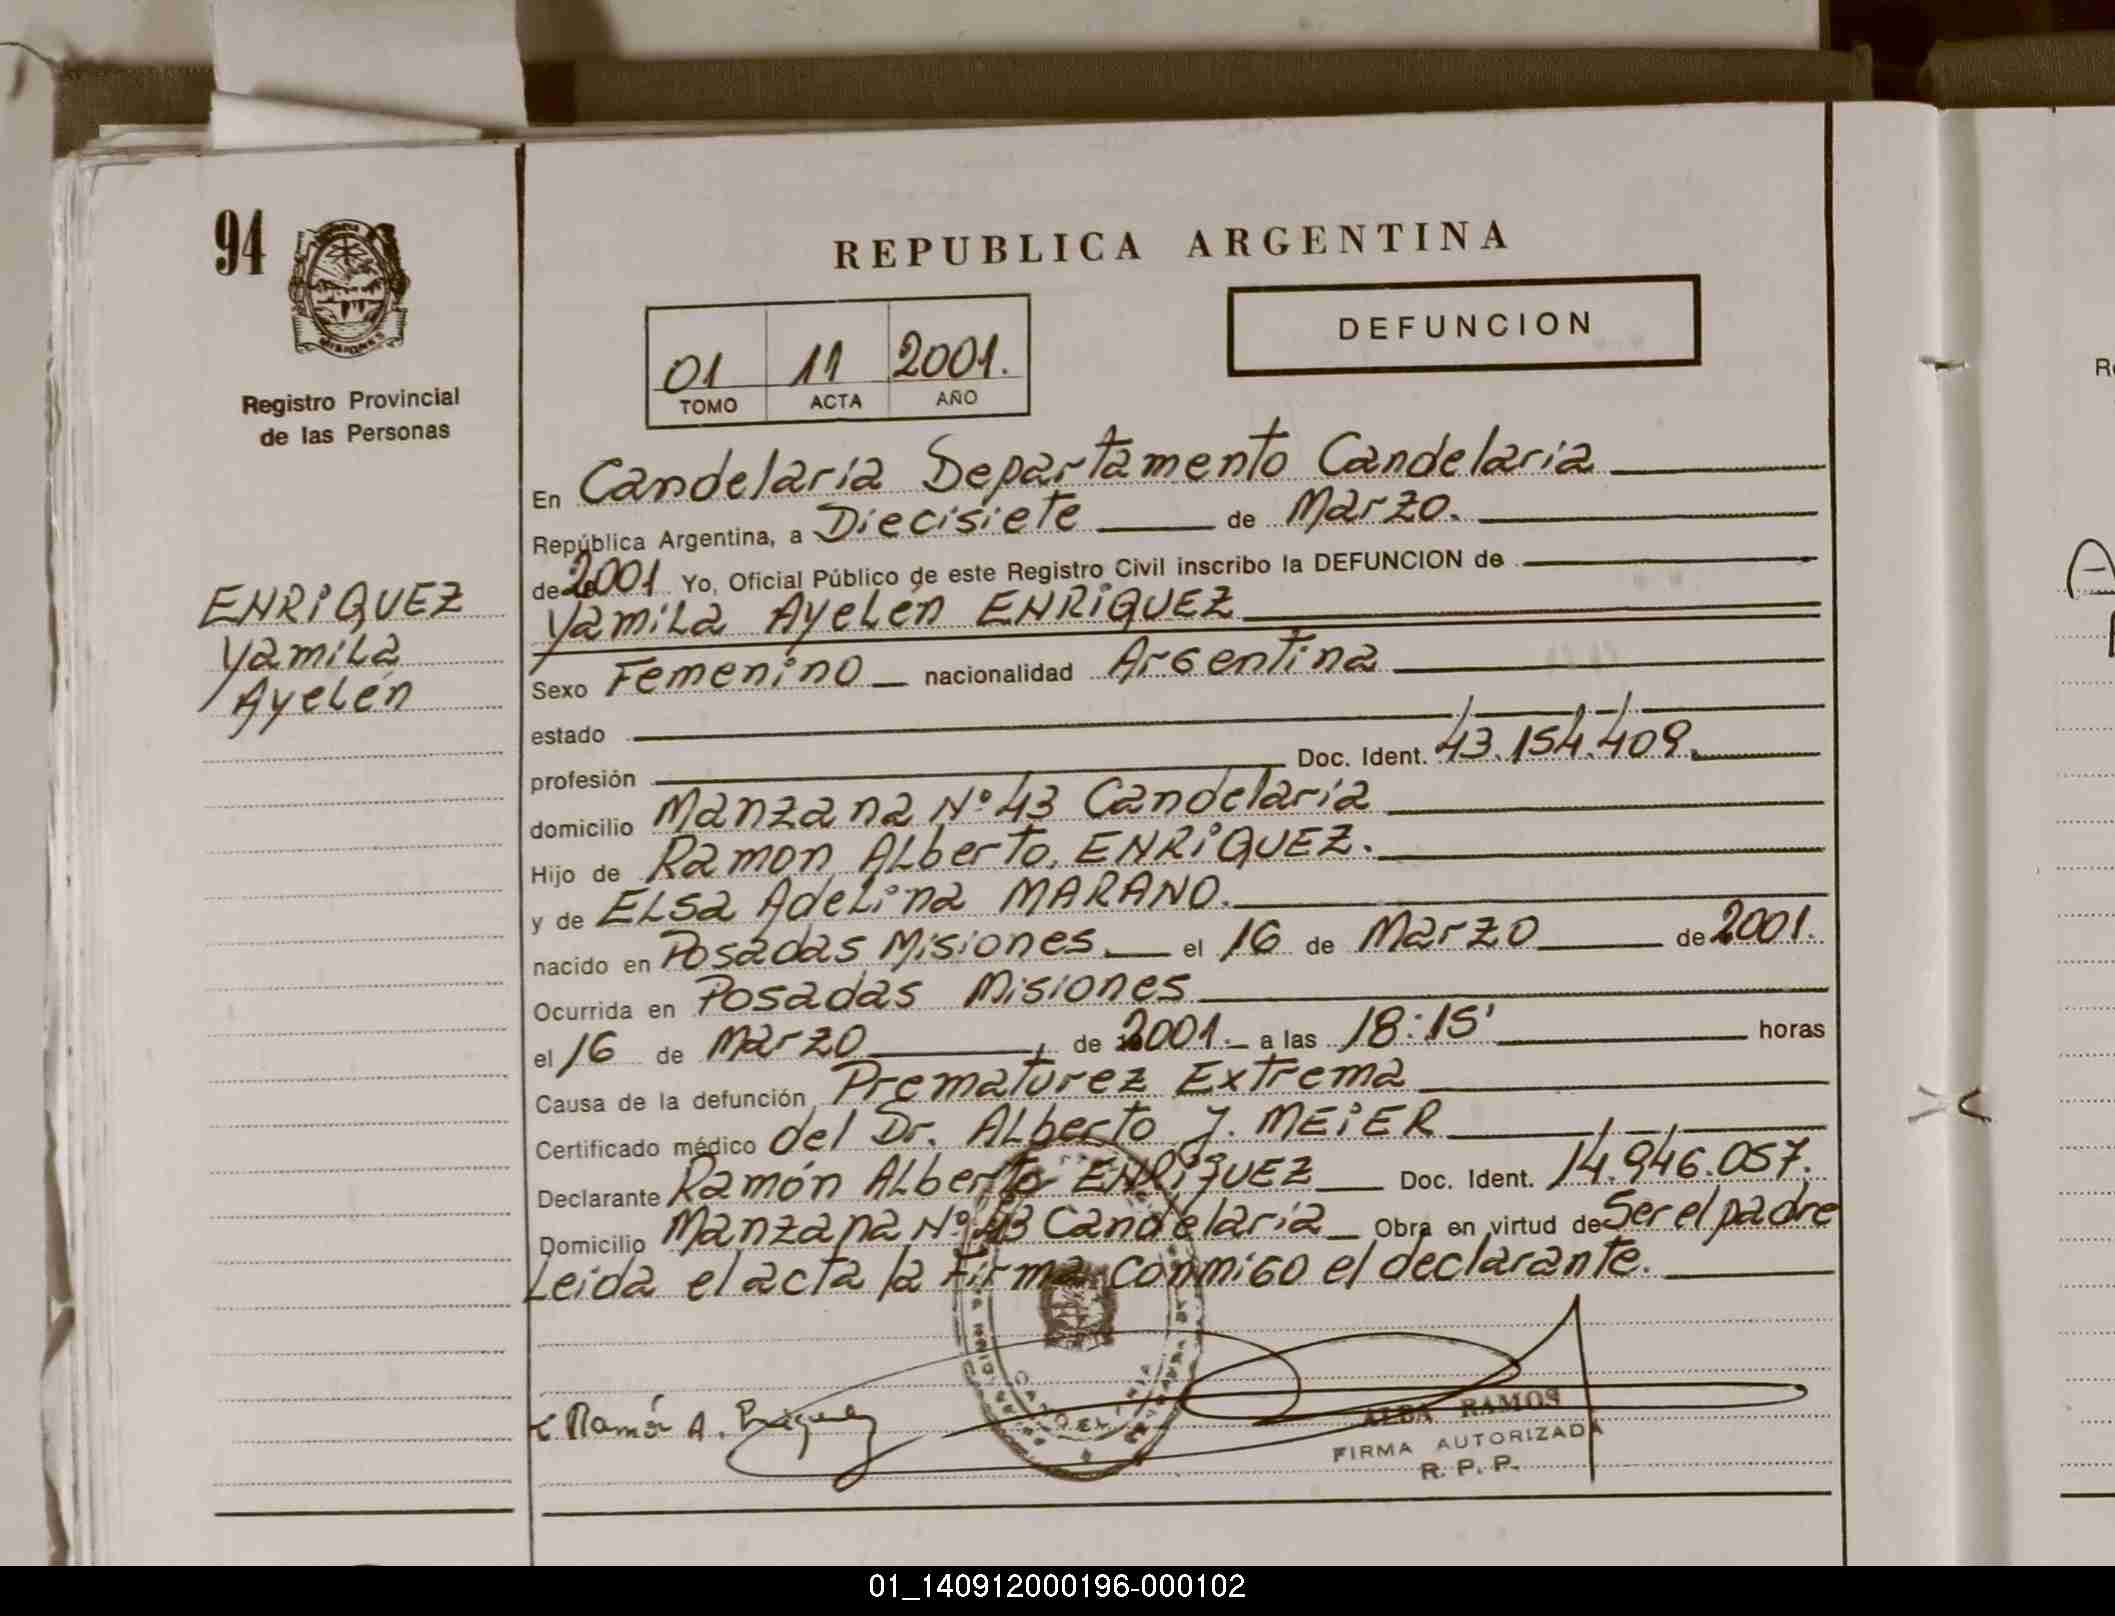 94
MISIONES
Registro Provincial
de las Personas
ENRIQUEZ
Yamila
Ayelén
REPUBLICA ARGENTINA
01 11 2001.
TOMO ACTA AÑO
DEFUNCION
En Candelaria Departamento Candelaria
República Argentina, a Diecisiete de Marzo.
de 2001 Yo, Oficial Público de este Registro Civil inscribo la DEFUNCION de
Yamila Ayelén ENRIQUEZ
Sexo Femenino nacionalidad Argentina
estado
profesión Doc. Ident. 43.154.409.
domicilio Manzana Nº 43 Candelaria
Hijo de Ramon Alberto ENRIQUEZ.
y de Elsa Adelina MARANO.
nacido en Posadas Misiones el 16 de Marzo de 2001.
Ocurrida en Posadas Misiones
el 16 de Marzo de 2001. a las 18:15' horas
Causa de la defunción Prematurez Extrema
Certificado médico del Dr. Alberto J. MEIER
Declarante Ramón Alberto ENRIQUEZ Doc. Ident. 14.946.057.
Domicilio Manzana Nº 43 Candelaria Obra en virtud de Ser el padre
Leida el acta la Firma conmigo el declarante.
Ramón A.
ALBA RAMOS
FIRMA AUTORIZADA
R. P. P.
01_140912000196-000102